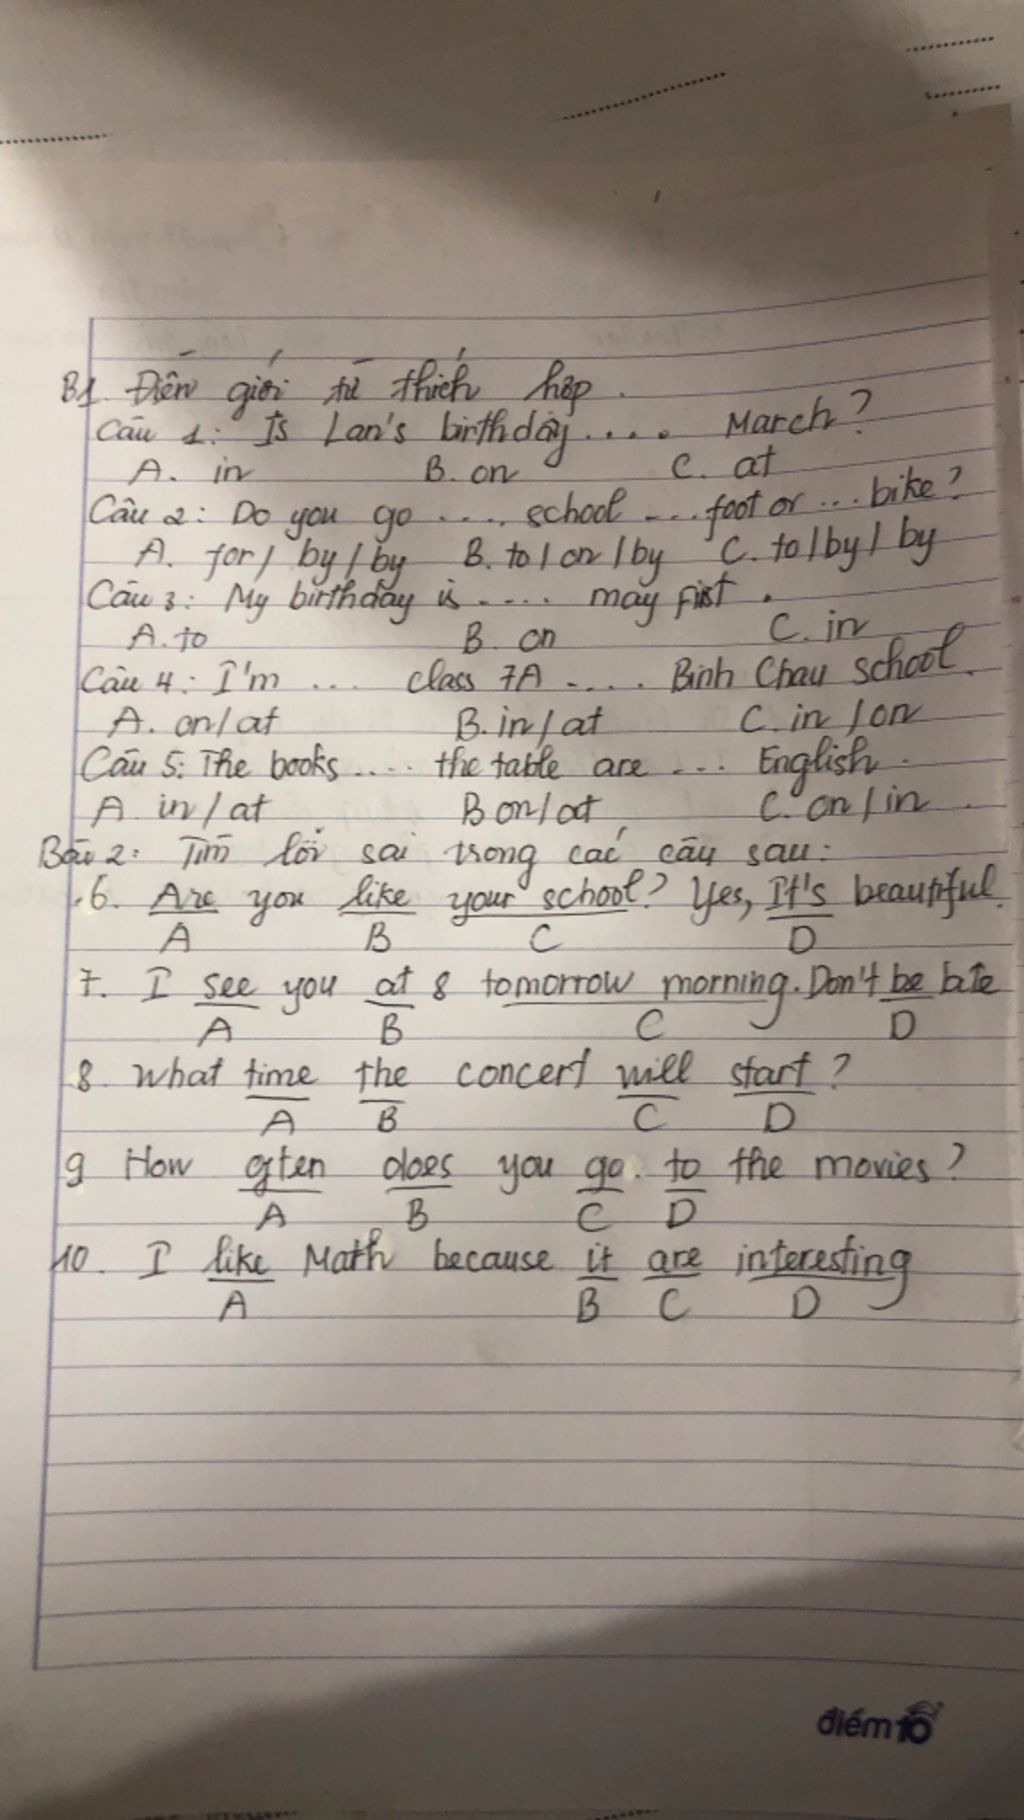 B1 Điền giới từ thích hợp.
Câu 1: Is Lan's birthday.... March?
A. in B. on C. at
Câu 2: Do you go .... school ....foot or ... bike?
A. for/ by/ by B. to/ on /by C. to/by/ by
Câu 3: My birthday is .... may first.
A. to B. on C. in
Câu 4: I'm ... class 7A .... Binh Chau school.
A. on/at B. in/at C. in /on
Câu 5: The books .... the table are ... English.
A in / at B on/at C. on/in
Bài 2: Tìm lỗi sai trong các câu sau:
.6. Are you like your school? Yes, It's beautiful.
A B C D
7. I see you at 8 tomorrow morning. Don't be late
A B C D
8. What time the concert will start?
A B C D
9 How often does you go to the movies?
A B C D
10. I like Math because it are interesting
A B C D
điểm 10